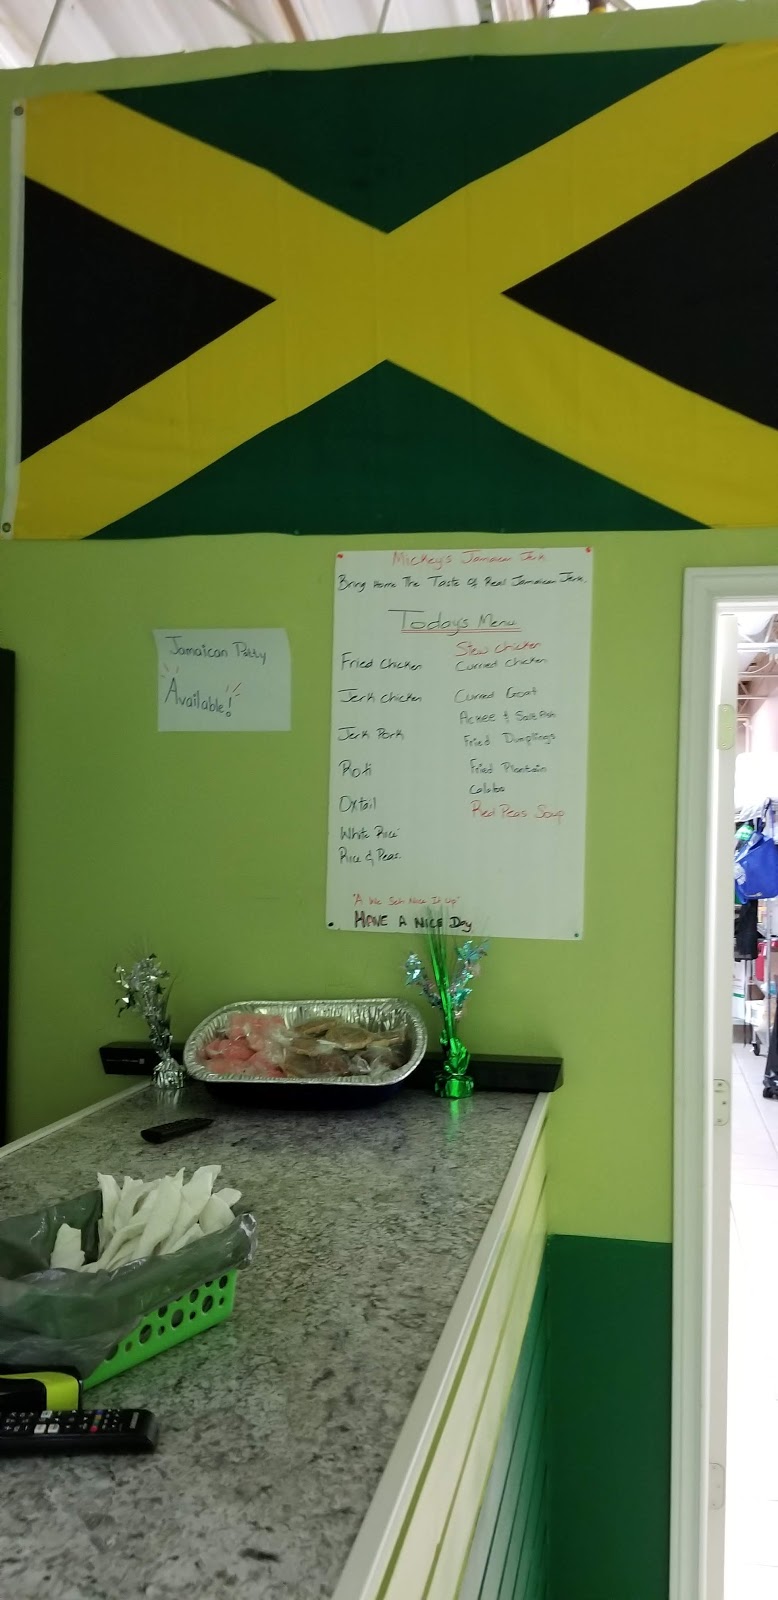 Jamaican Patty
Available!
Mickey's Jamaican Jerk
Bring Home The Taste Of Real Jamaican Jerk.
Today's Menu
Fried Chicken
Jerk Chicken
Jerk Pork
Roti
Oxtail
White Rice
Rice & Peas.
Stew Chicken
Curried Chicken
Curried Goat
Ackee & Salt fish
Fried Dumplings
Fried Plantain
Calaloo
Red Peas Soup
"A We Seh Nice It Up"
HAVE A NICE Day